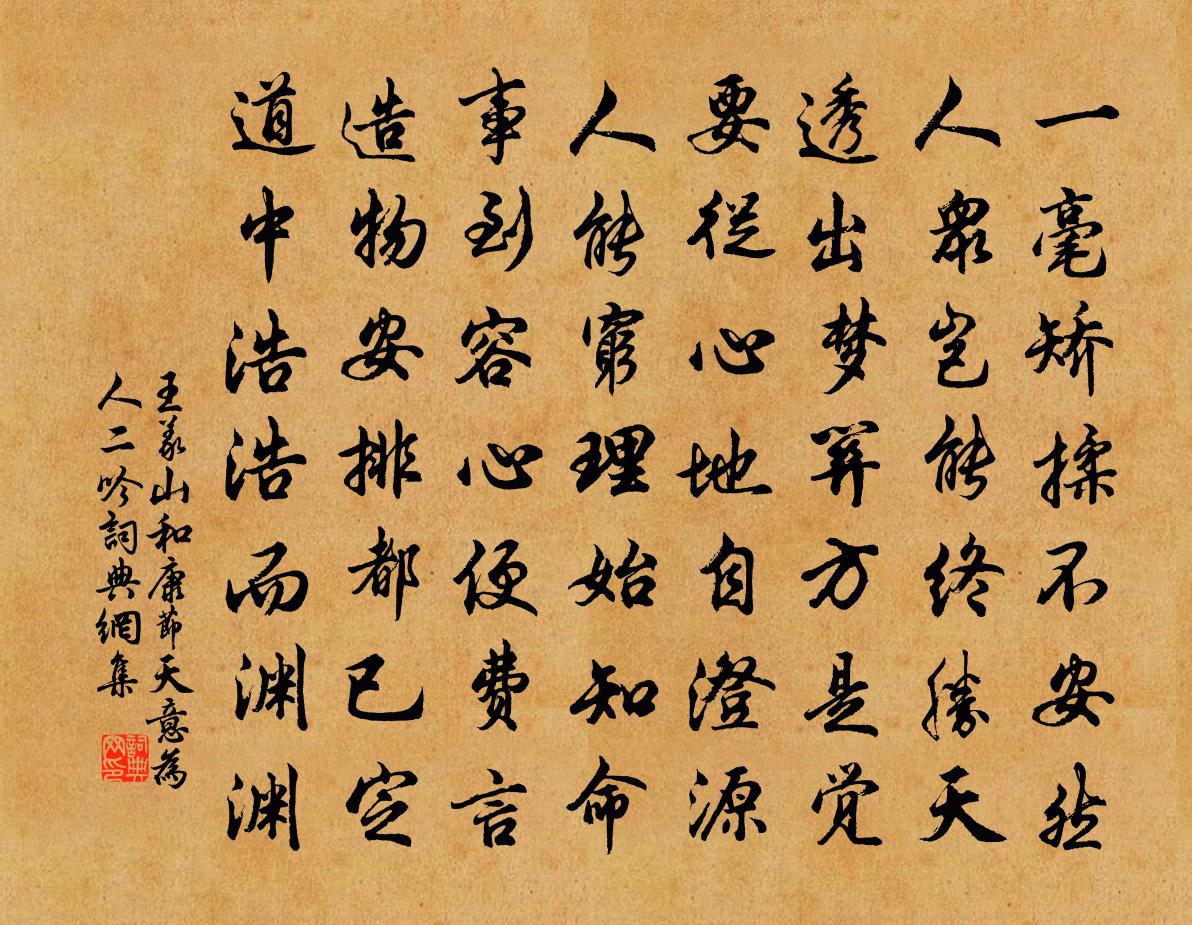 一毫矫揉不安然
人眾岂能终勝天
透出梦算方是觉
要從心地自澄源
人能窮理始知命
事到容心便费言
造物安排都已定
道中浩浩而渊渊
王义山和康節天意為
人二吟詞典網集
詞典
网印